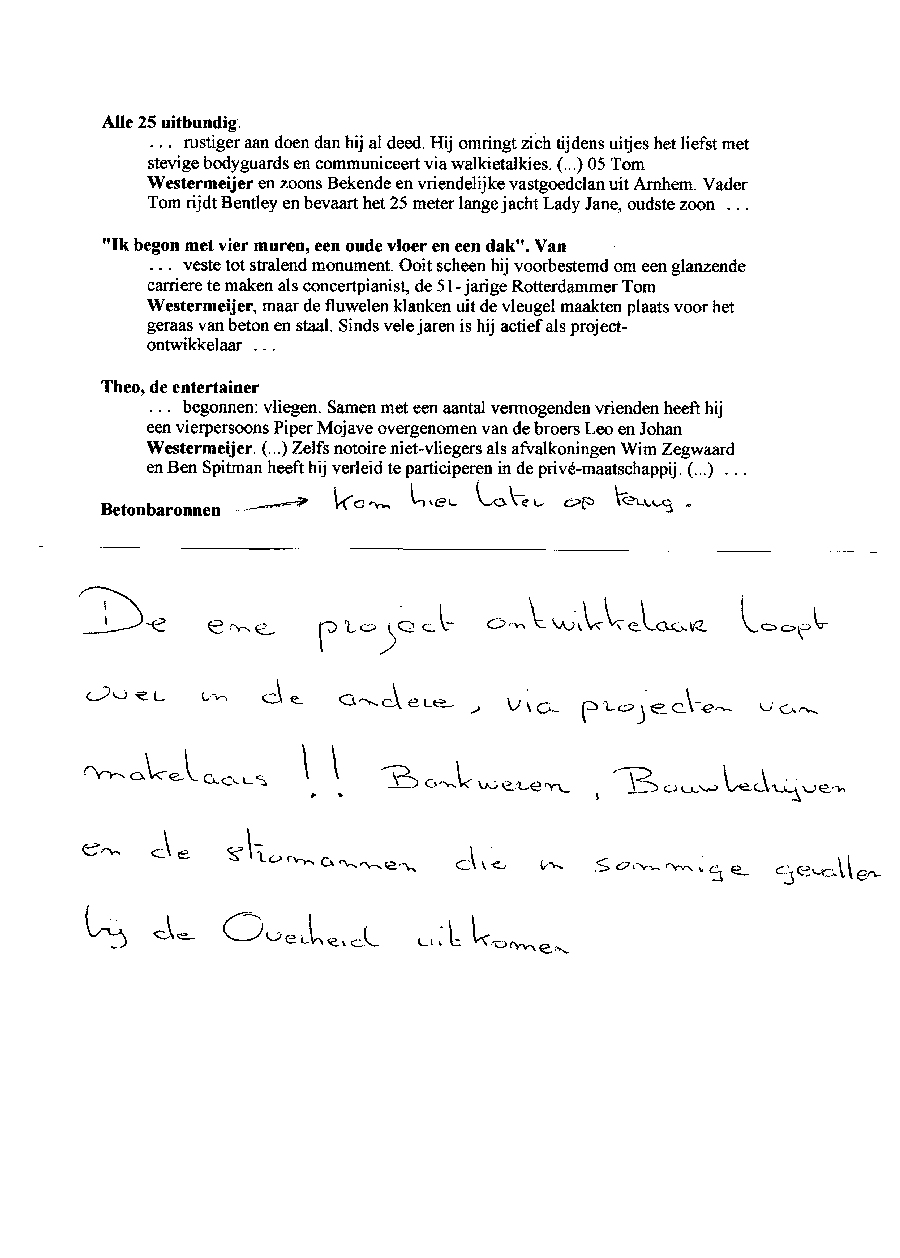 Alle 25 uitbundig.
... rustiger aan doen dan hij al deed. Hij omringt zich tijdens uitjes het liefst met
stevige bodyguards en communiceert via walkietalkies. (...) 05 Tom
Westermeijer en zoons Bekende en vriendelijke vastgoedclan uit Arnhem. Vader
Tom rijdt Bentley en bevaart het 25 meter lange jacht Lady Jane, oudste zoon ...
"Ik begon met vier muren, een oude vloer en een dak". Van
... veste tot stralend monument. Ooit scheen hij voorbestemd om een glanzende
carriere te maken als concertpianist, de 51- jarige Rotterdammer Tom
Westermeijer, maar de fluwelen klanken uit de vleugel maakten plaats voor het
geraas van beton en staal. Sinds vele jaren is hij actief als project-
ontwikkelaar ...
Theo, de entertainer
... begonnen: vliegen. Samen met een aantal vermogenden vrienden heeft hij
een vierpersoons Piper Mojave overgenomen van de broers Leo en Johan
Westermeijer. (...) Zelfs notoire niet-vliegers als afvalkoningen Wim Zegwaard
en Ben Spitman heeft hij verleid te participeren in de privé-maatschappij. (...) ...
Betonbaronnen → kom hier later op terug.
De ene project ontwikkelaar loopt
over in de andere, via projecten van
makelaars !! Bankwezen, Bouwbedrijven
en de stromannen die in sommige gevallen
bij de Overheid uitkomen